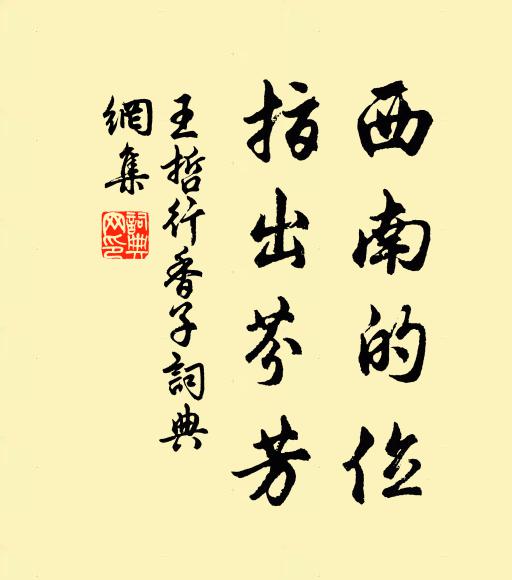 西南的位
指出芬芳
王哲行香子詞典
網集
詞典網印